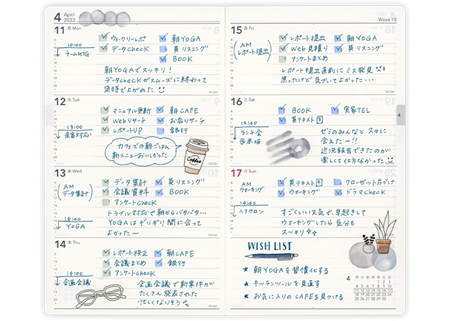 4 April 2022
11 月 Mon
ウィークリーレポ 朝YOGA
データcheck 英リスニング
BOOK
10:00
チームMTG
朝YOGAでスッキリ！
データcheckがスムーズに終わって
定時で上がれた
12 火 Tue
マニュアル更新 朝CAFE
Webリサーチ お店リサーチ
レポートUP 銀行
13:00
カフェでの朝ごはん
朝メニューおいしかった
Coffee
13 水 Wed
AM
データ集計
データ集計 英リスニング
会議資料 BOOK
アンケートcheck
18:00
YOGA
トラブル対応で朝からバタバタ…
YOGAはギリギリ間に合って
よかった〜
14 木 Thu
レポート校正 朝CAFE
会議まとめ 銀行
アンケートcheck
14:00
企画会議
企画会議で新案件が
たくさん発表された
忙しくなりそう
Week 15
15 金 Fri
AM
レポート提出
レポート提出 朝YOGA
Web見積り 英リスニング
アンケートまとめ
レポート提出直前にミス発見
思ったけど気づいてよかった…
16 土 Sat
BOOK 実家TEL
英テキスト
13:00
ランチ会
ゼミのみんなと久々に
会えた〜!!
近況報告できたのが
楽しくてイロイロ話した
17 日 Sun
AM
ウォーキング
英テキスト クローゼット片づけ
ウォーキング ドラマcheck
すごくいい天気で、早起きして
ウォーキングしたら気分も
スッキリ
WISH LIST
朝YOGAを習慣化する
キッチンツールを見直す
お気に入りのCAFEを見つける
4